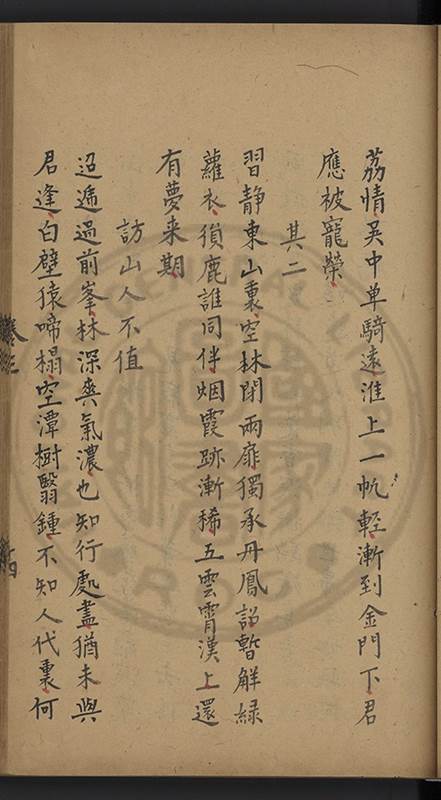 荔情吳中单騎遠淮上一帆輕漸到金門下君
應被寵榮
其二
習静東山裏空林閉兩扉獨承丹鳳詔暫解緑
蘿衣須鹿誰同伴烟霞跡漸稀五雲霄漢上還
有夢来期
訪山人不值
迢遞過前峯林深爽氣濃也知行處盡猶未與
君逢白壁猿啼榻空潭樹翳鍾不知人代裏何
卷三
十四